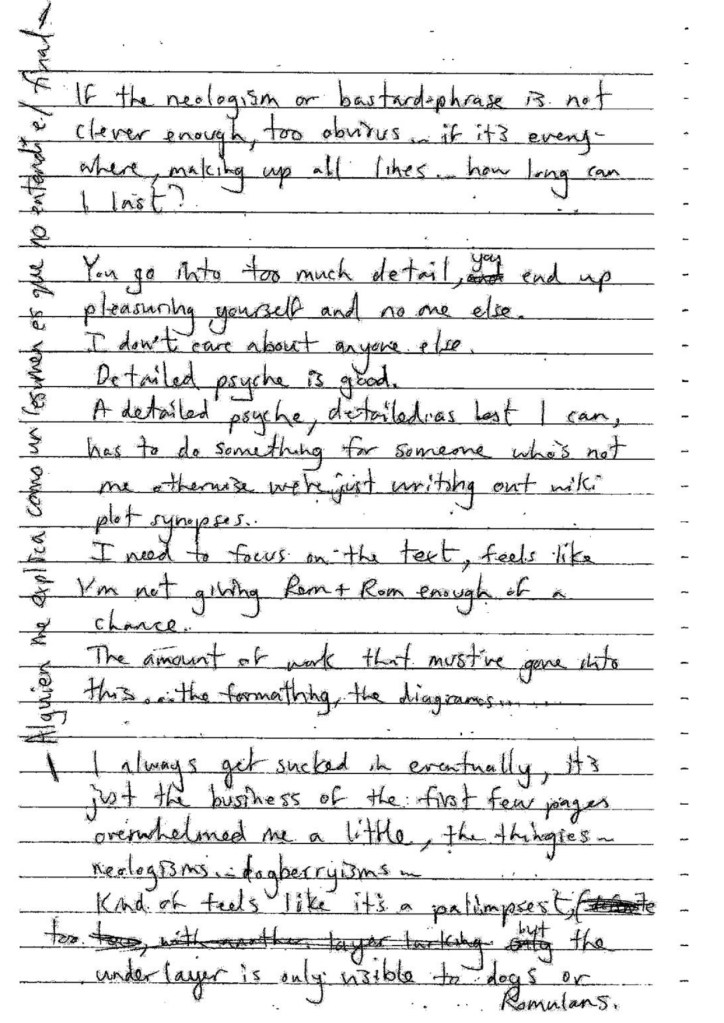 If the neologism or bastard-phrase is not
clever enough, too obvious... if it's every-
where, making up all lines... how long can
I last?
You go into too much detail, you end up
pleasuring yourself and no one else.
I don't care about anyone else.
Detailed psyche is good.
A detailed psyche, detailed as best I can,
has to do something for someone who's not
me otherwise we're just writing out wiki
plot synopses..
I need to focus on the text, feels like
I'm not giving Rom + Rom enough of a
chance.
The amount of work that must've gone into
this... the formatting, the diagrams......
I always get sucked in eventually, it's
just the business of the first few pages
overwhelmed me a little, the thingies~
neologisms... dogberryisms~
Kind of feels like it's a palimpsest,
too but the
under layer is only visible to dogs or
Romulans.
— Alguien me explica como un resumen es que no entendí el final →